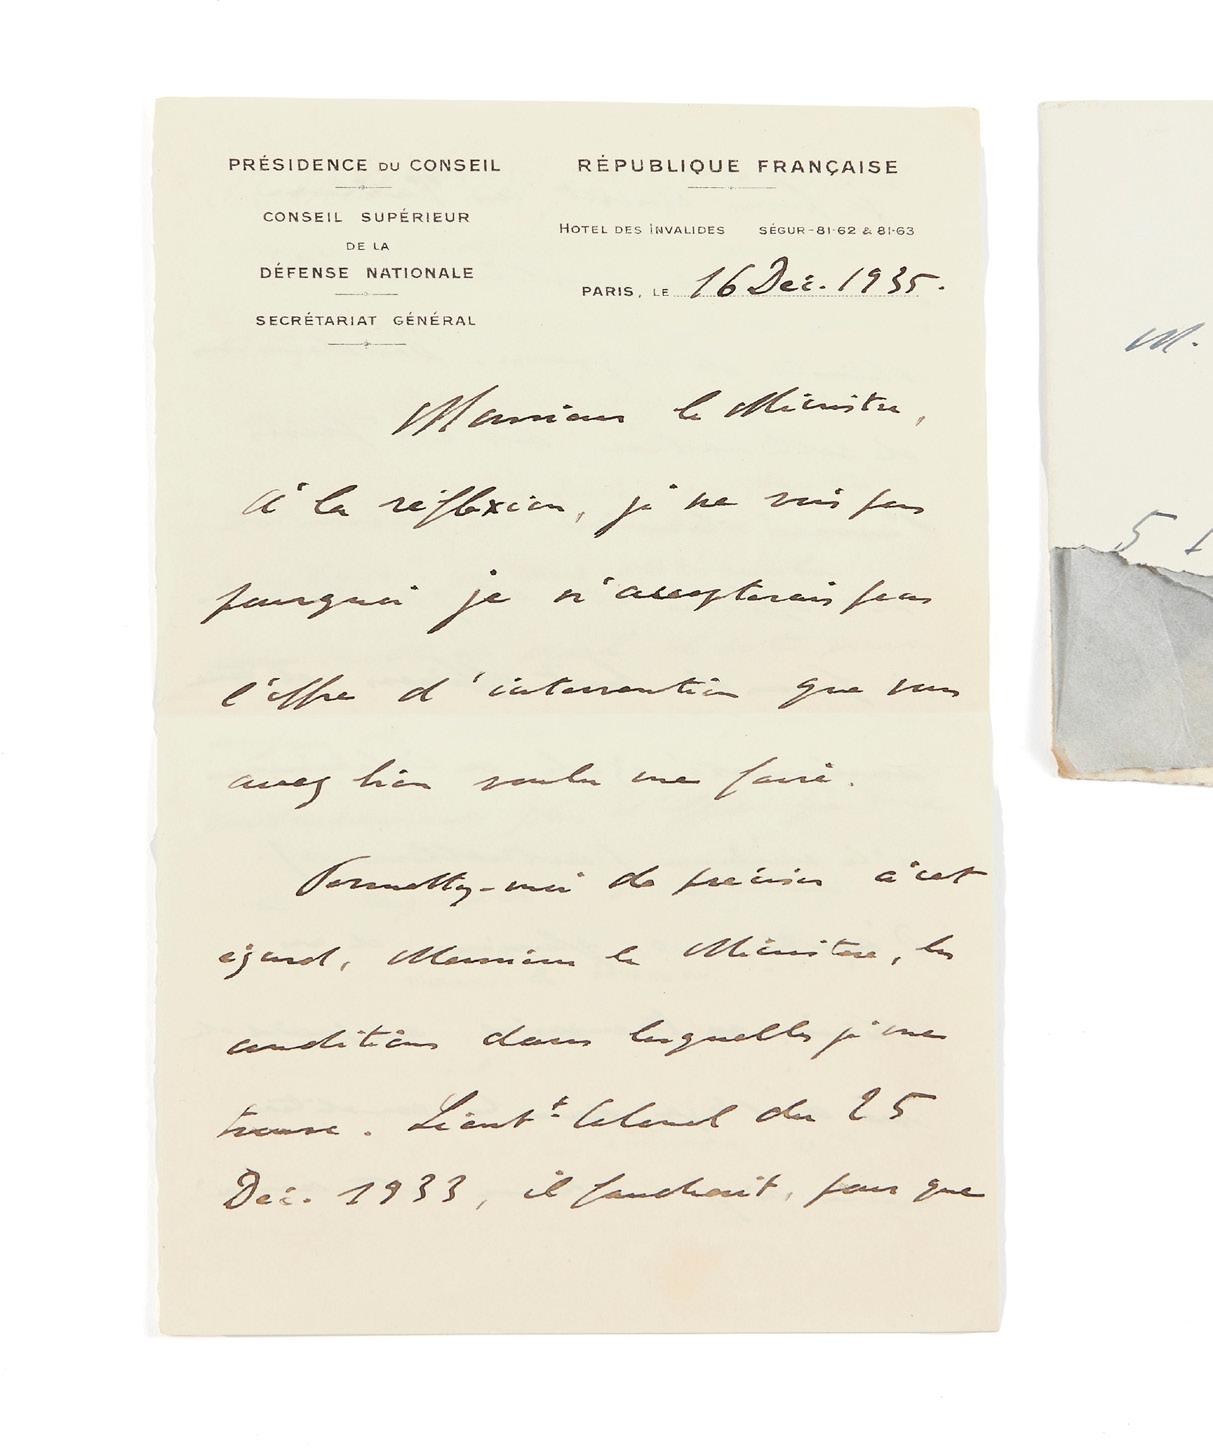 PRÉSIDENCE DU CONSEIL
CONSEIL SUPÉRIEUR
DE LA
DÉFENSE NATIONALE
SECRÉTARIAT GÉNÉRAL
RÉPUBLIQUE FRANÇAISE
HOTEL DES INVALIDES SÉGUR-81-62 & 81-63
PARIS, LE 16 Déc. 1935.
Monsieur le Ministre,
à la réflexion, je ne vois pas
pourquoi je n'accepterais pas
l'offre d'intervention que vous
avez bien voulu me faire.
Permettez-moi de préciser à cet
égard, Monsieur le Ministre, les
conditions dans lesquelles je me
trouve. Lieut.t Colonel du 25
Déc. 1933, il faudrait, pour que
M.
5